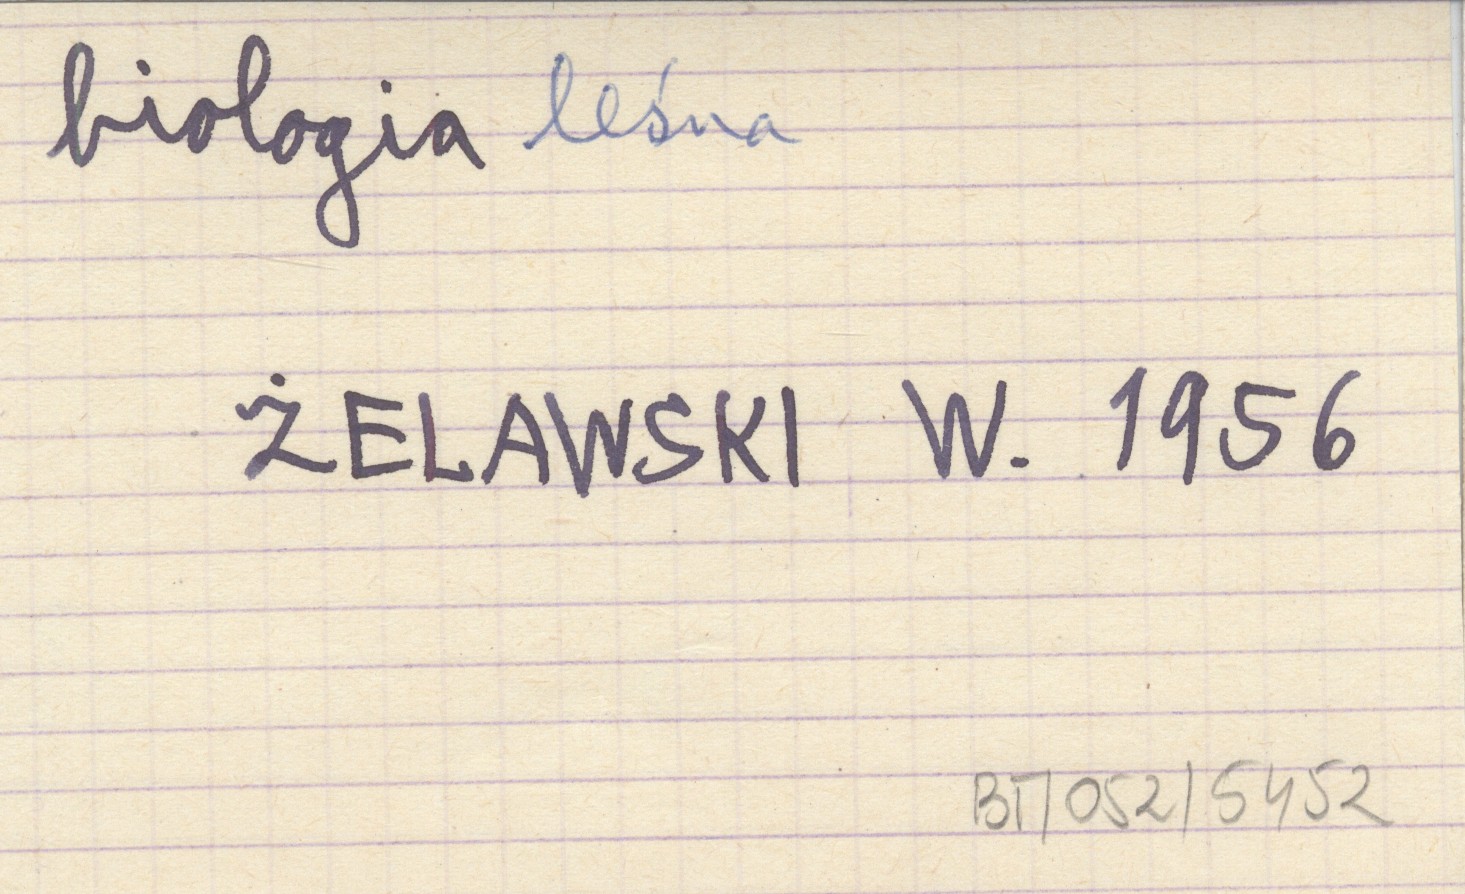 biologia leśna
ŻELAWSKI W. 1956
BT/052/5452